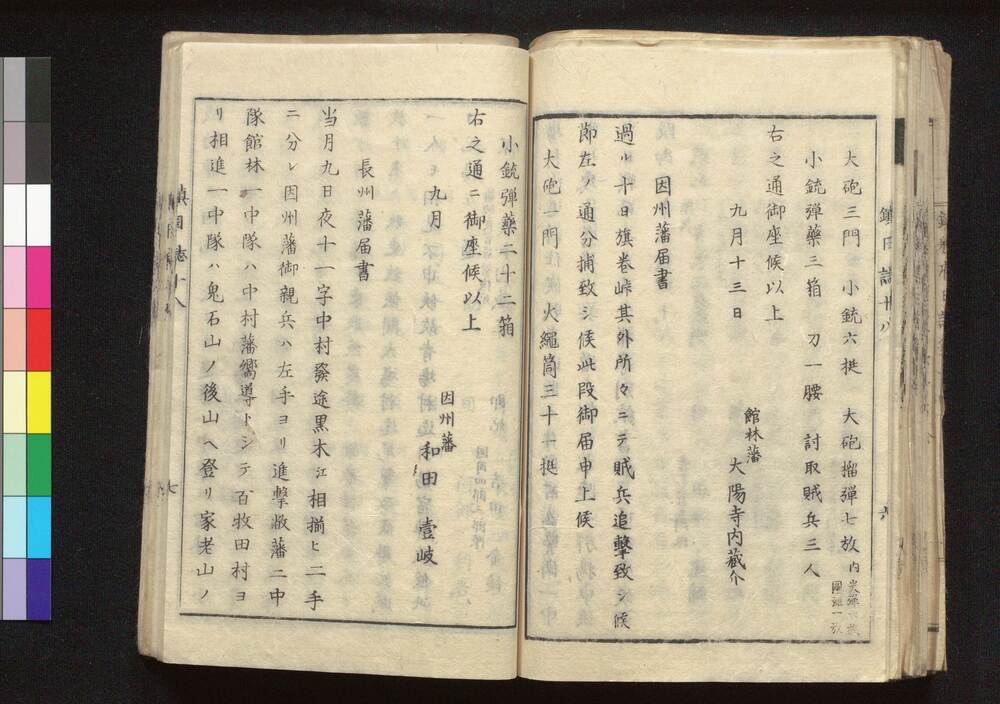 大砲三門　小銃六挺　大砲榴弾七放内
小銃弾薬三箱　刀一腰　討取賊兵三人
右之通御座候以上
九月十三日
館林藩
大陽寺内蔵介
因州藩届書
過ル十日旗巻峠其外所々ニテ賊兵追撃致シ候
節左ノ通分捕致シ候此段御届申上候
大砲一門　火縄筒三十一挺
小銃弾薬二十二箱
右之通ニ御座候以上
九月
因州藩
和田壹岐
長州藩届書
当月九日夜十一字中村發途黒木江相揃ヒ二手
ニ分レ因州藩御親兵ハ左手ヨリ進撃敝藩二中
隊館林一中隊ハ中村藩嚮導トシテ百牧田村ヨ
リ相進一中隊ハ鬼石山ノ後山ヘ登リ家老山ノ